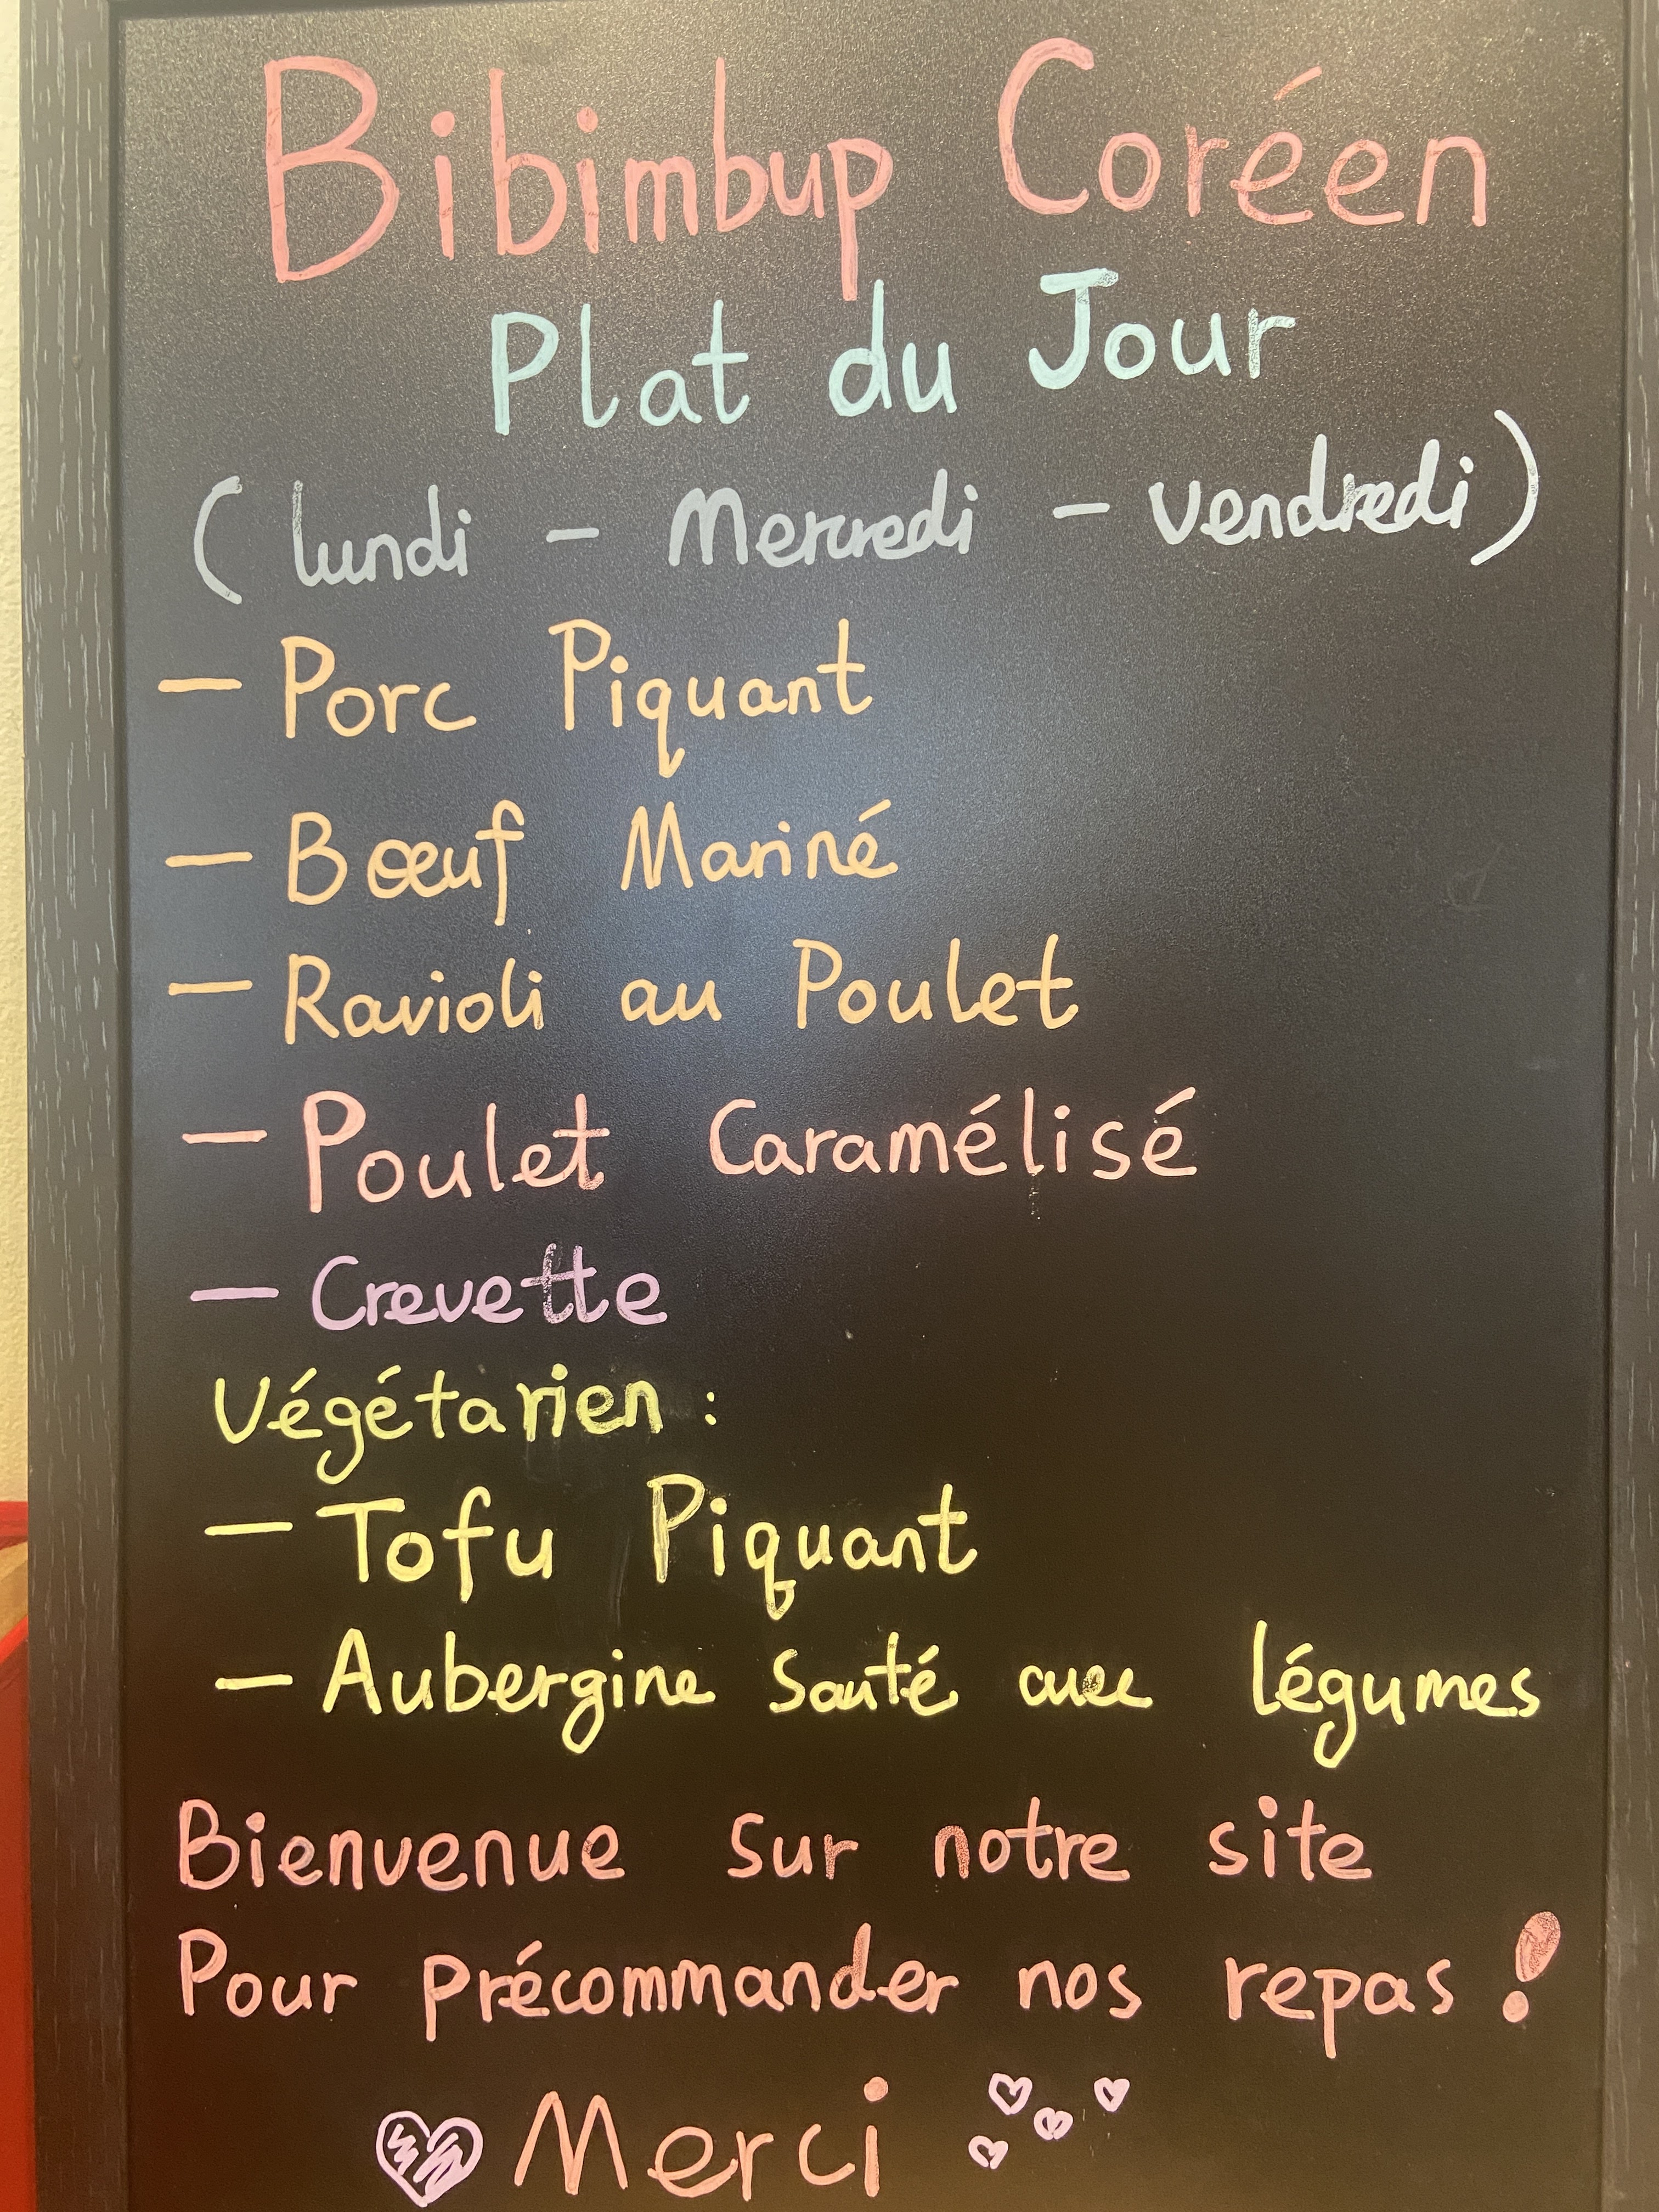 Bibimbup Coréen
Plat du Jour
(lundi - Mercredi - vendredi)
- Porc Piquant
- Bœuf Mariné
- Ravioli au Poulet
- Poulet Caramélisé
- Crevette
Végétarien :
- Tofu Piquant
- Aubergine Sauté avec légumes
Bienvenue sur notre site
Pour précommander nos repas !
Merci